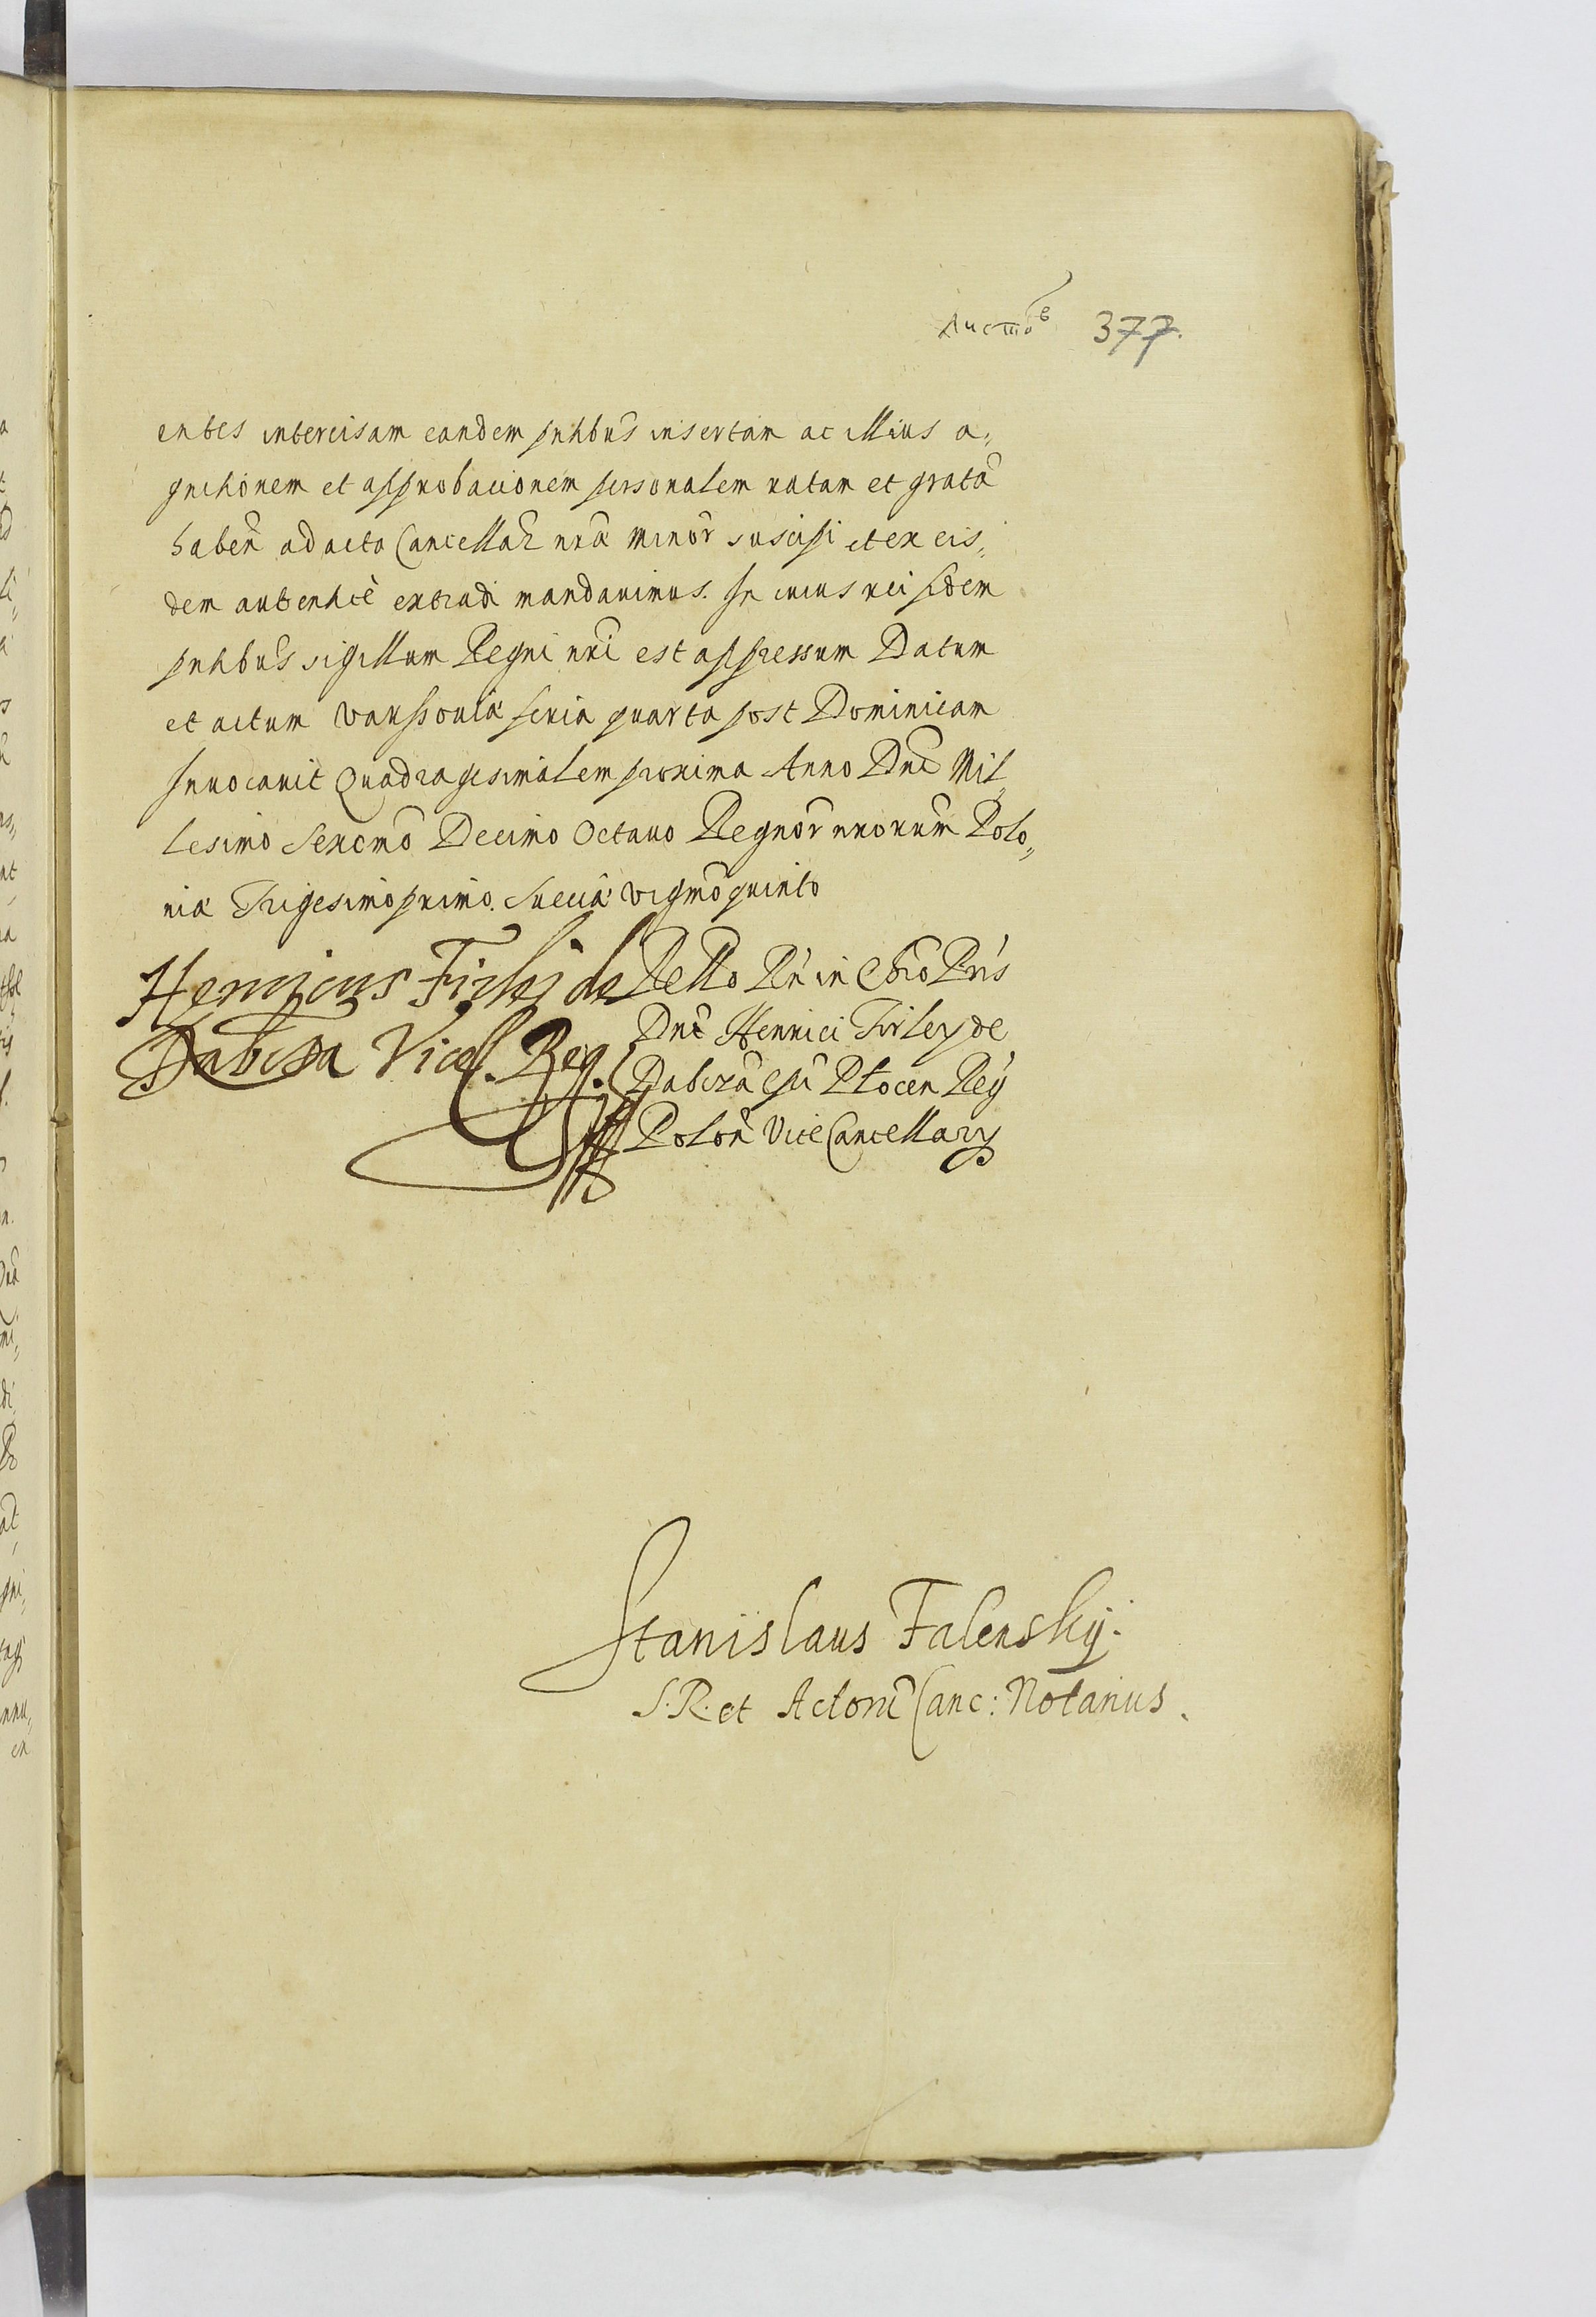 листов 377.
entes intercisam eandem pntibus insertam ac illius a„
gnitionem et approbationem personalem ratam et gratã
haben̄ ad acta Cancellar nr̃a minor suscipi et ex eis„
dem autenticè extradi mandavimus. In cuius rei fidem
pntibus sigillum Regni nr̃i est appressum Datum
et actum Varssovia feria quarta post Dominicam
Invocavit Quadragesimalem proxima Anno Dnĩ Mil„
lesimo Sexcmõ Decimo Octavo Regnor nrorum Polo„
nia Trigesimo primo. Suecia vigmõ quinto
Henricus Firlej de
Dabrova Vicel. Reg.
Rello Rñ in Chrõ Pris
Dnĩ Henrici Firley de
Dabrova Epĩ Plocen Reg
Polon̄ Vice Cancellary
Stanislaus Falensky.
S. R. et Actorũ Canc: Notarius.